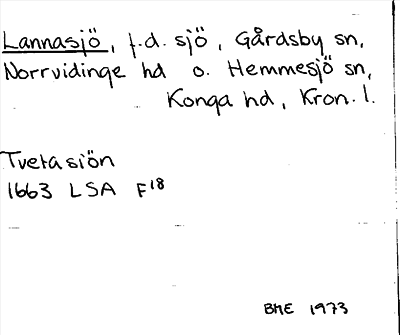 Lannasjö, f.d. sjö, Gårdsby sn,
Norrvidinge hd o. Hemmesjö sn,
Konga hd, Kron. l.
Tvetasiön
1663 LSA F18
BME 1973